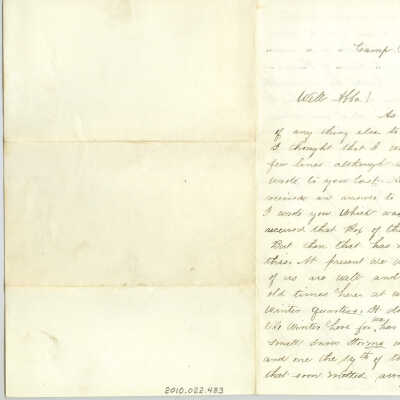 Camp
Well Abba!
As
of any thing else to
I thought that I w
few lines although
wrote to you last.
received an answer to
I wrote you which was
received that Box of th
But then that has
three. At present we
of us are well and
old times here at
Winter quarters. It do
like Winter here for has
small snow storms
and one the 19th of
that soon melted aw
2010.022.483